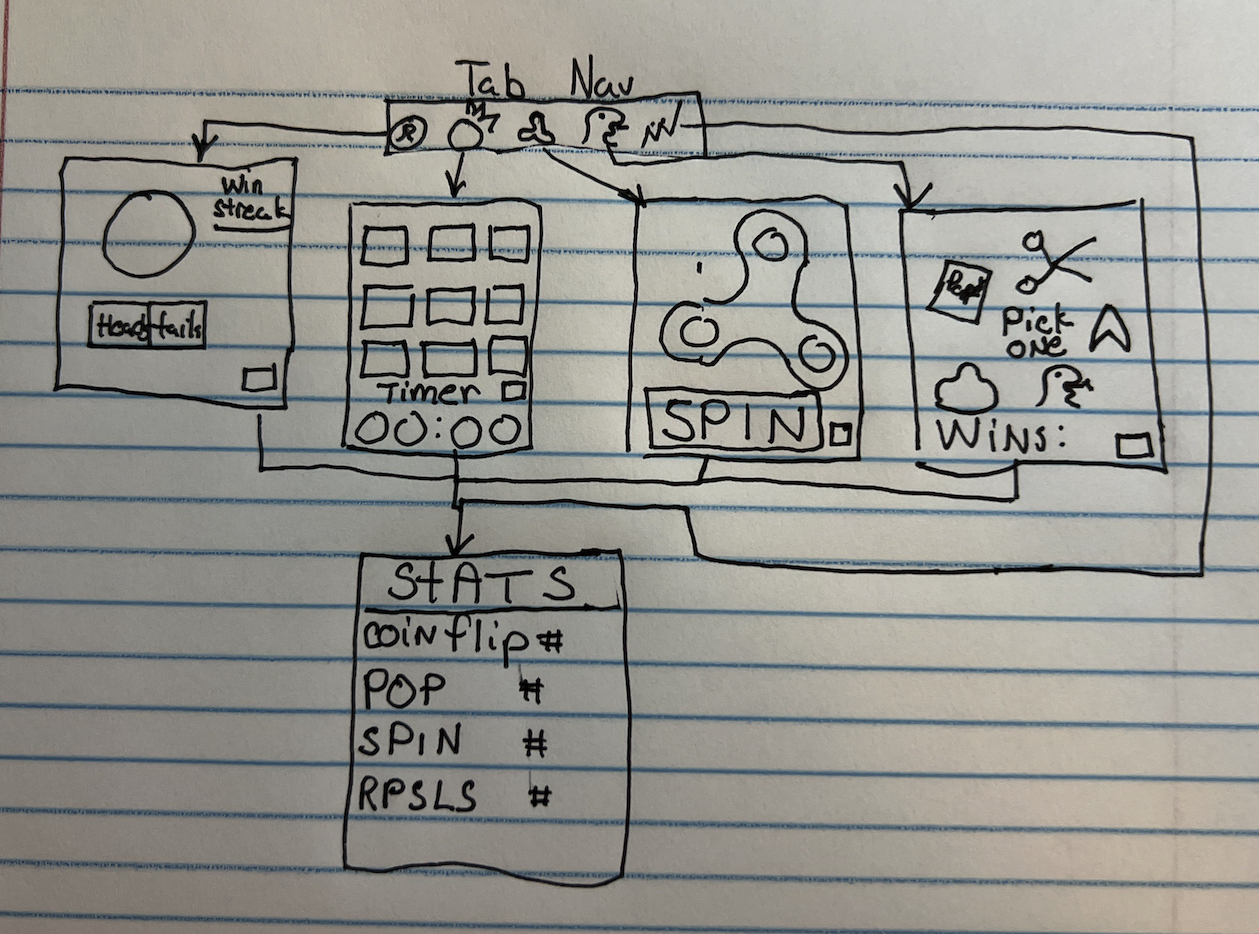 Tab Nav
Win
streak
Heads tails
Timer
00:00
SPIN
Paper
Pick
ONE
WiNS:
StATS
coiNflip #
POP #
SPiN #
RPSLS #